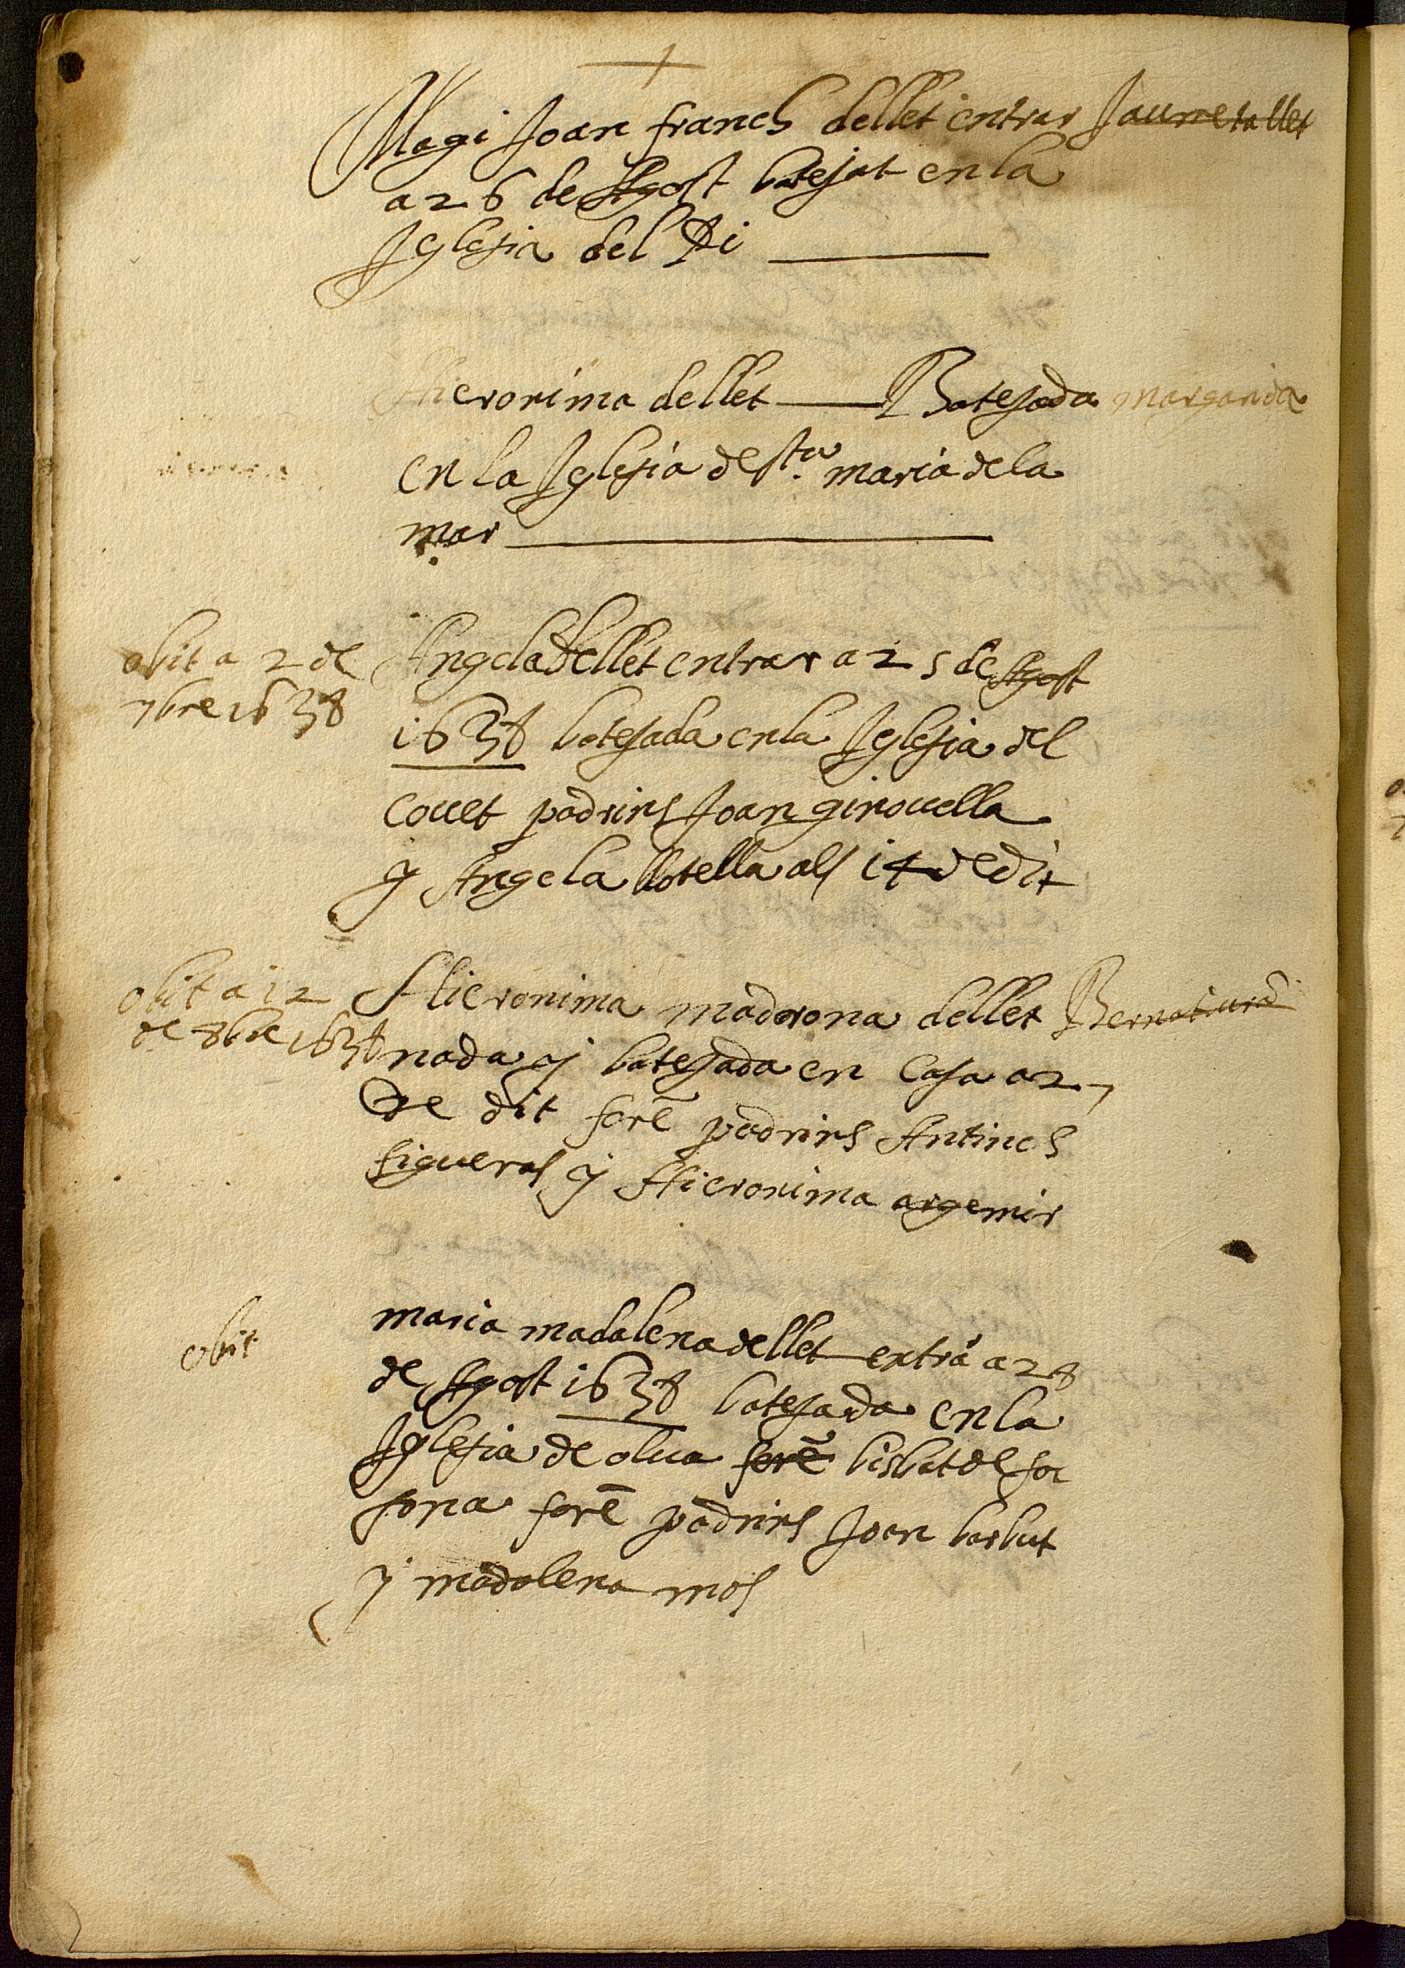 Magi Joan franch dellet entrar Jaume tallet
a 26 de Agost batejat en la
Iglesia del Pi
Hieronima dellet Batejada margarida
en la Iglesia de sta. maria de la
mar
obit a 2 de
7bre 1638
Angela dellet entrar a 25 de Agost
1638 batejada en la Iglesia del
Couet padrins Joan girouella
y Angela llotella als 14 de dit
obit a 12
de 8bre 1638
Hieronima madrona dellet Bernat
nada y batejada en Casa a 27
de dit forē padrins Antinch
figueras y Hieronima argemir
obit
maria madalena dellet entrá a 28
de Agost 1638 batejada en la
Iglesia de olua forē bisbat de sol
sona forē padrins Joan barbut
y madalena mas